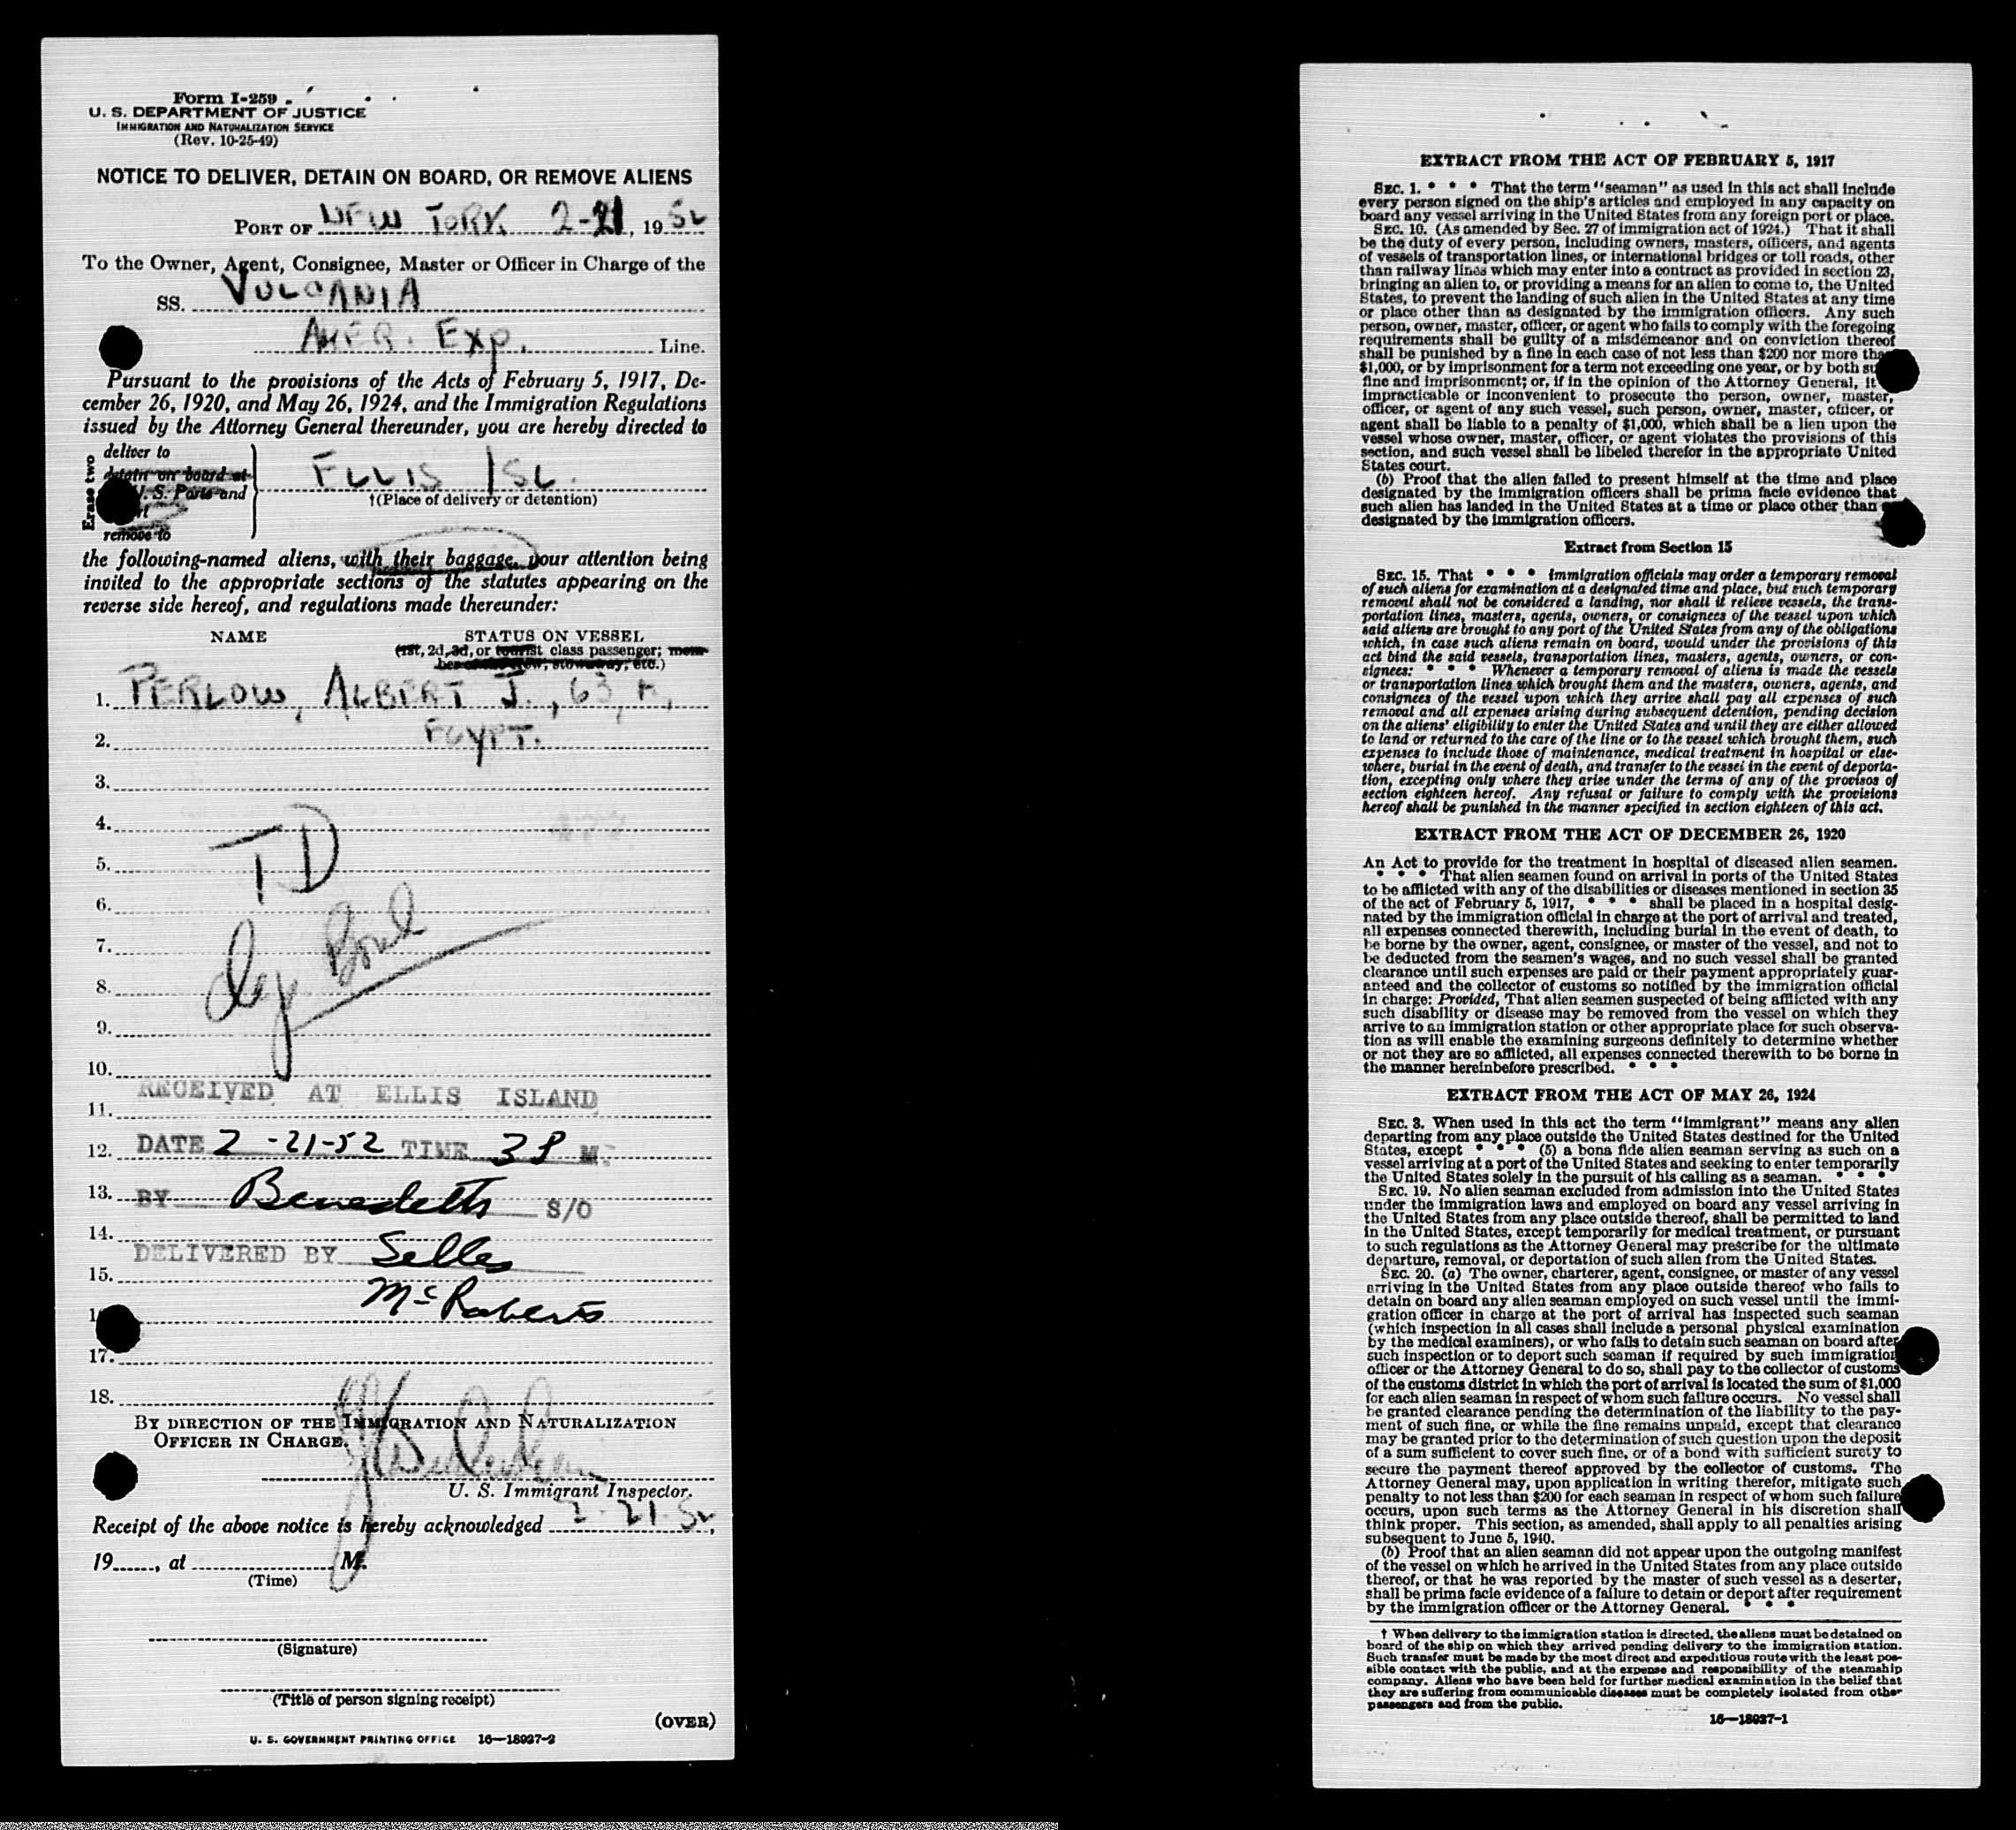 Form I-259
U. S. DEPARTMENT OF JUSTICE
IMMIGRATION AND NATURALIZATION SERVICE
(Rev. 10-25-49)
NOTICE TO DELIVER, DETAIN ON BOARD, OR REMOVE ALIENS
PORT OF NEW YORK 2-21, 1952
To the Owner, Agent, Consignee, Master or Officer in Charge of the
SS. VULCANIA
AMER. EXP. Line.
Pursuant to the provisions of the Acts of February 5, 1917, De-
cember 26, 1920, and May 26, 1924, and the Immigration Regulations
issued by the Attorney General thereunder, you are hereby directed to
Erase two
deliver to
detain on board at
U. S. Ports and
remove to
ELLIS ISL.
†(Place of delivery or detention)
the following-named aliens, with their baggage, your attention being
invited to the appropriate sections of the statutes appearing on the
reverse side hereof, and regulations made thereunder:
NAME STATUS ON VESSEL
(1st, 2d, 3d, or tourist class passenger; mem-
ber of the crew; stowaway, etc.)
1. PERLOW, ALBERT J., 63, M,
2. EGYPT.
3.
4.
5. TD
6.
7. Bond
8.
9.
10.
RECEIVED AT ELLIS ISLAND
11.
12. DATE 2-21-52 TIME 38 M.
13. BY S/O
14.
DELIVERED BY Selles
15.
McRoberts
17.
18.
BY DIRECTION OF THE IMMIGRATION AND NATURALIZATION
OFFICER IN CHARGE.
U. S. Immigrant Inspector.
Receipt of the above notice is hereby acknowledged 2-21-52,
19......, at M.
(Time)
(Signature)
(Title of person signing receipt)
(OVER)
U. S. GOVERNMENT PRINTING OFFICE 16—18927-2
EXTRACT FROM THE ACT OF FEBRUARY 5, 1917
SEC. 1. * * * That the term "seaman" as used in this act shall include
every person signed on the ship's articles and employed in any capacity on
board any vessel arriving in the United States from any foreign port or place.
SEC. 10. (As amended by Sec. 27 of immigration act of 1924.) That it shall
be the duty of every person, including owners, masters, officers, and agents
of vessels of transportation lines, or international bridges or toll roads, other
than railway lines which may enter into a contract as provided in section 23,
bringing an alien to, or providing a means for an alien to come to, the United
States, to prevent the landing of such alien in the United States at any time
or place other than as designated by the immigration officers. Any such
person, owner, master, officer, or agent who fails to comply with the foregoing
requirements shall be guilty of a misdemeanor and on conviction thereof
shall be punished by a fine in each case of not less than $200 nor more than
$1,000, or by imprisonment for a term not exceeding one year, or by both su
fine and imprisonment; or, if in the opinion of the Attorney General, it
impracticable or inconvenient to prosecute the person, owner, master,
officer, or agent of any such vessel, such person, owner, master, officer, or
agent shall be liable to a penalty of $1,000, which shall be a lien upon the
vessel whose owner, master, officer, or agent violates the provisions of this
section, and such vessel shall be libeled therefor in the appropriate United
States court.
(b) Proof that the alien failed to present himself at the time and place
designated by the immigration officers shall be prima facie evidence that
such alien has landed in the United States at a time or place other than
designated by the immigration officers.
Extract from Section 15
SEC. 15. That * * * immigration officials may order a temporary removal
of such aliens for examination at a designated time and place, but such temporary
removal shall not be considered a landing, nor shall it relieve vessels, the trans-
portation lines, masters, agents, owners, or consignees of the vessel upon which
said aliens are brought to any port of the United States from any of the obligations
which, in case such aliens remain on board, would under the provisions of this
act bind the said vessels, transportation lines, masters, agents, owners, or con-
signees: * * * Whenever a temporary removal of aliens is made the vessels
or transportation lines which brought them and the masters, owners, agents, and
consignees of the vessel upon which they arrive shall pay all expenses of such
removal and all expenses arising during subsequent detention, pending decision
on the aliens' eligibility to enter the United States and until they are either allowed
to land or returned to the care of the line or to the vessel which brought them, such
expenses to include those of maintenance, medical treatment in hospital or else-
where, burial in the event of death, and transfer to the vessel in the event of deporta-
tion, excepting only where they arise under the terms of any of the provisos of
section eighteen hereof. Any refusal or failure to comply with the provisions
hereof shall be punished in the manner specified in section eighteen of this act.
EXTRACT FROM THE ACT OF DECEMBER 26, 1920
An Act to provide for the treatment in hospital of diseased alien seamen.
* * * That alien seamen found on arrival in ports of the United States
to be afflicted with any of the disabilities or diseases mentioned in section 35
of the act of February 5, 1917, * * * shall be placed in a hospital desig-
nated by the immigration official in charge at the port of arrival and treated,
all expenses connected therewith, including burial in the event of death, to
be borne by the owner, agent, consignee, or master of the vessel, and not to
be deducted from the seamen's wages, and no such vessel shall be granted
clearance until such expenses are paid or their payment appropriately guar-
anteed and the collector of customs so notified by the immigration official
in charge: Provided, That alien seamen suspected of being afflicted with any
such disability or disease may be removed from the vessel on which they
arrive to an immigration station or other appropriate place for such observa-
tion as will enable the examining surgeons definitely to determine whether
or not they are so afflicted, all expenses connected therewith to be borne in
the manner hereinbefore prescribed. * * *
EXTRACT FROM THE ACT OF MAY 26, 1924
SEC. 3. When used in this act the term "immigrant" means any alien
departing from any place outside the United States destined for the United
States, except * * * (5) a bona fide alien seaman serving as such on a
vessel arriving at a port of the United States and seeking to enter temporarily
the United States solely in the pursuit of his calling as a seaman. * * *
SEC. 19. No alien seaman excluded from admission into the United States
under the immigration laws and employed on board any vessel arriving in
the United States from any place outside thereof, shall be permitted to land
in the United States, except temporarily for medical treatment, or pursuant
to such regulations as the Attorney General may prescribe for the ultimate
departure, removal, or deportation of such alien from the United States.
SEC. 20. (a) The owner, charterer, agent, consignee, or master of any vessel
arriving in the United States from any place outside thereof who fails to
detain on board any alien seaman employed on such vessel until the immi-
gration officer in charge at the port of arrival has inspected such seaman
(which inspection in all cases shall include a personal physical examination
by the medical examiners), or who fails to detain such seaman on board after
such inspection or to deport such seaman if required by such immigration
officer or the Attorney General to do so, shall pay to the collector of customs
of the customs district in which the port of arrival is located the sum of $1,000
for each alien seaman in respect of whom such failure occurs. No vessel shall
be granted clearance pending the determination of the liability to the pay-
ment of such fine, or while the fine remains unpaid, except that clearance
may be granted prior to the determination of such question upon the deposit
of a sum sufficient to cover such fine, or of a bond with sufficient surety to
secure the payment thereof approved by the collector of customs. The
Attorney General may, upon application in writing therefor, mitigate such
penalty to not less than $200 for each seaman in respect of whom such failure
occurs, upon such terms as the Attorney General in his discretion shall
think proper. This section, as amended, shall apply to all penalties arising
subsequent to June 5, 1940.
(b) Proof that an alien seaman did not appear upon the outgoing manifest
of the vessel on which he arrived in the United States from any place outside
thereof, or that he was reported by the master of such vessel as a deserter,
shall be prima facie evidence of a failure to detain or deport after requirement
by the immigration officer or the Attorney General. * * *
† When delivery to the immigration station is directed, the aliens must be detained on
board of the ship on which they arrived pending delivery to the immigration station.
Such transfer must be made by the most direct and expeditious route with the least pos-
sible contact with the public, and at the expense and responsibility of the steamship
company. Aliens who have been held for further medical examination in the belief that
they are suffering from communicable diseases must be completely isolated from other
passengers and from the public.
16—18927-1